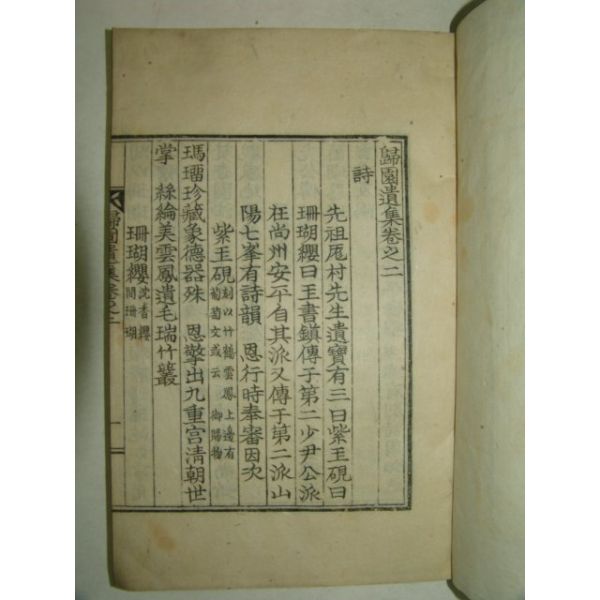 歸園遺集卷之二
詩
先祖厖村先生遺寶有三曰紫玉硯曰
珊瑚纓曰玉書鎭傳于第二少尹公派
在尙州安平自其派又傳于第二派山
陽七峯有詩韻 恩行時奉審因次
紫玉硯 刻以竹鶴雲鳳上邊有
葡萄文或云 御賜物
瑪瑠珍藏象德器殊 恩擎出九重宮淸朝世
掌 絲綸美雲鳳遺毛瑞竹叢
珊瑚纓 沈香纓
間珊瑚
歸園遺集卷之二